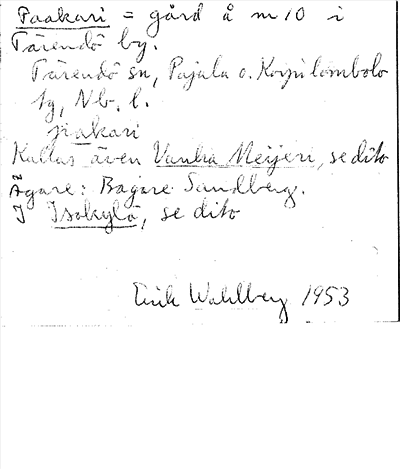 Paakari = gård å m10 i
Tärendö by.
Tärendö sn, Pajala o. Korpilombolo
tg, Nb. l.
pakari
Kallas även Vanha Meijeri, se dito
Ägare: Bagare Sandberg.
I Isokylä, se dito
Erik Wahlberg 1953